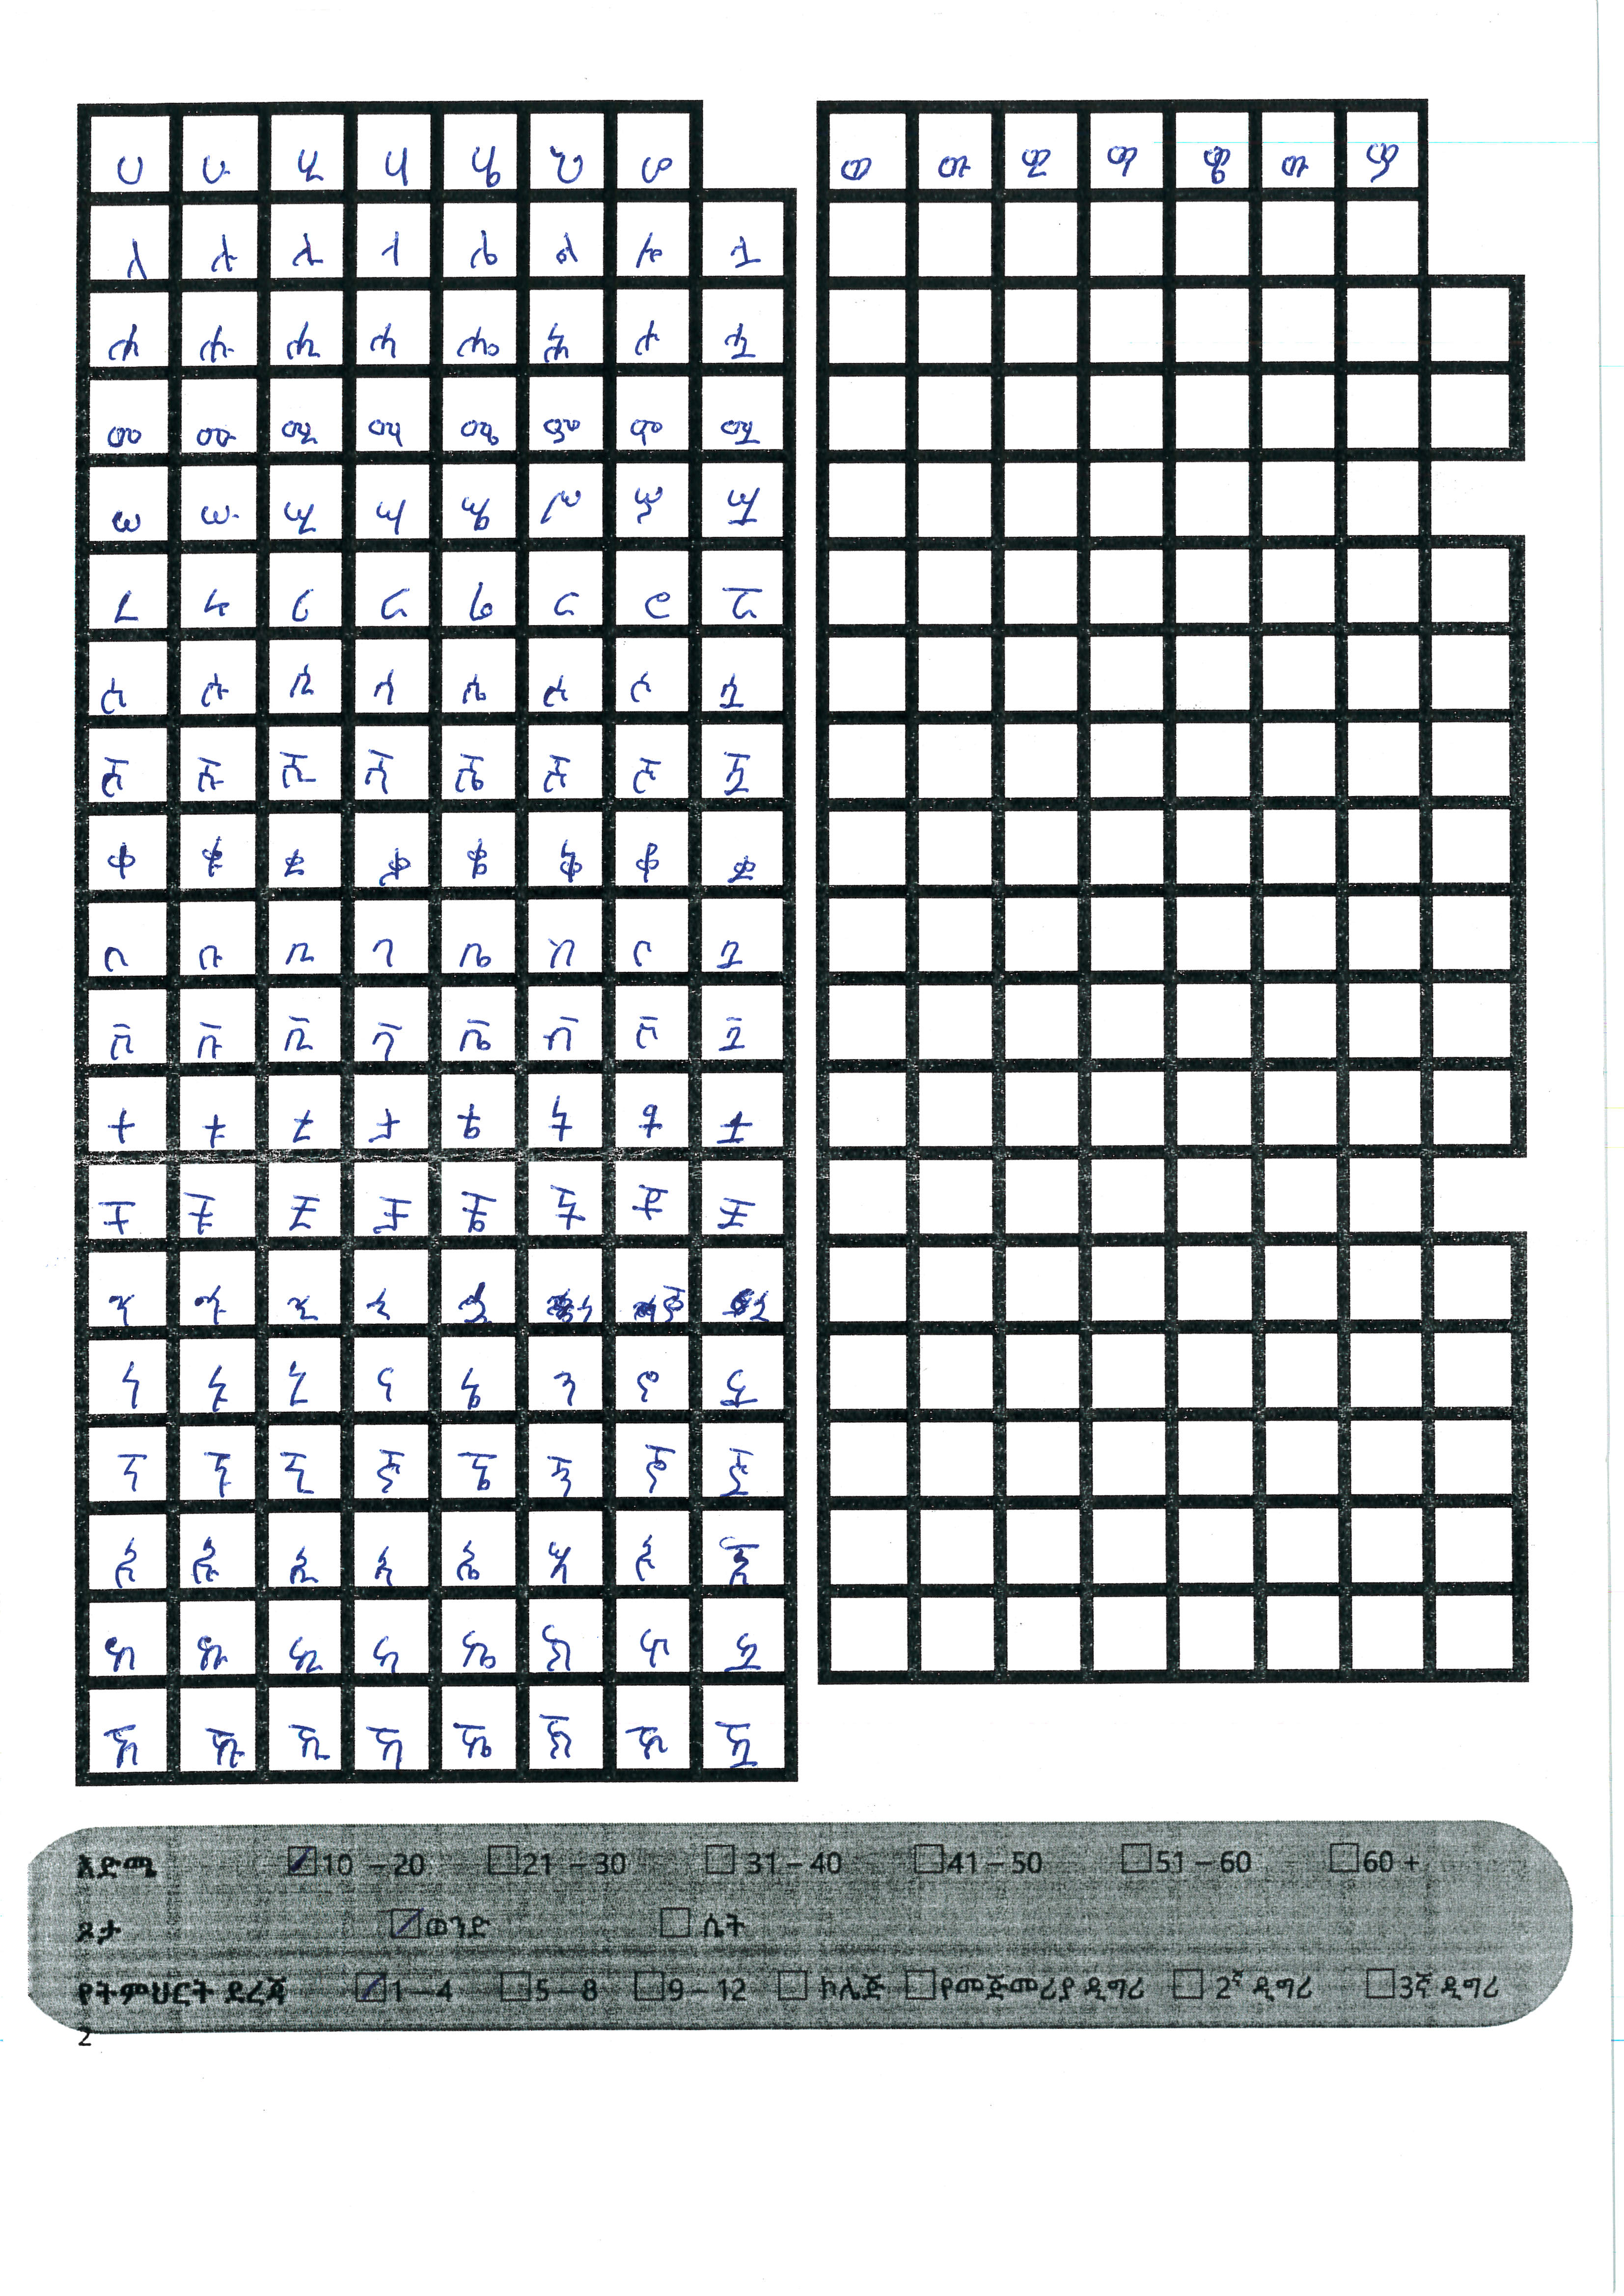 ሀ ሁ ሂ ሃ ሄ ህ ሆ
ለ ሉ ሊ ላ ሌ ል ሎ ሏ
ሐ ሑ ሒ ሓ ሔ ሕ ሖ ሗ
መ ሙ ሚ ማ ሜ ም ሞ ሟ
ሠ ሡ ሢ ሣ ሤ ሥ ሦ ሧ
ረ ሩ ሪ ራ ሬ ር ሮ ሯ
ሰ ሱ ሲ ሳ ሴ ስ ሶ ሷ
ሸ ሹ ሺ ሻ ሼ ሽ ሾ ሿ
ቀ ቁ ቂ ቃ ቄ ቅ ቆ ቋ
በ ቡ ቢ ባ ቤ ብ ቦ ቧ
ቨ ቩ ቪ ቫ ቬ ቭ ቮ ቯ
ተ ቱ ቲ ታ ቴ ት ቶ ቷ
ቸ ቹ ቺ ቻ ቼ ች ቾ ቿ
ኀ ኁ ኂ ኃ
ነ ኑ ኒ ና ኔ ን ኖ ኗ
ኘ ኙ ኚ ኛ ኜ ኝ ኞ ኟ
አ ኡ ኢ ኣ ኤ እ ኦ ኧ
ከ ኩ ኪ ካ ኬ ክ ኮ ኳ
ኸ ኹ ኺ ኻ ኼ ኽ ኾ ዃ
ወ ዉ ዊ ዋ ዌ ው ዎ
እድሜ 10 – 20 21 – 30 31 – 40 41 – 50 51 – 60 60 +
ጾታ ወንድ ሴት
የትምህርት ደረጃ 1 – 4 5 – 8 9 – 12 ኮሌጅ የመጅመሪያ ዲግሪ 2ኛ ዲግሪ 3ኛ ዲግሪ
2